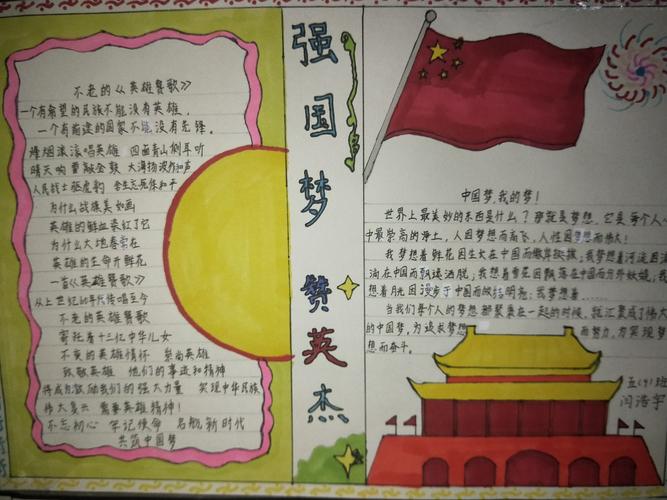 不老的《英雄赞歌》
一个有希望的民族不能没有英雄,
一个有前途的国家不能没有先锋。
烽烟滚滚唱英雄 四面青山侧耳听
晴天响雷敲金鼓 大海扬波作和声
人民战士驱虎豹 舍生忘死保和平
为什么战旗美如画
英雄的鲜血染红了它
为什么大地春常在
英雄的生命开鲜花
一首《英雄赞歌》
从上世纪 年代传唱至今
不老的英雄赞歌
寄托着十三亿中华儿女
不变的英雄情怀 崇尚英雄
致敬英雄 他们的事迹和精神
将成为激励我们的强大力量 实现中华民族
伟大复兴 需要英雄精神!
不忘初心 牢记使命 名舰新时代
共筑中国梦
强国梦 赞英杰
中国梦,我的梦!
世界上最美妙的东西是什么?那就是梦想。它是每个人心
中最崇高的净土,人因梦想而高飞,人性因梦想而伟大!
我梦想着鲜花因生在中国而 ,我梦想着河流因流
淌在中国而飘逸洒脱;我想着雪花因飘落在中国而分外妖娆;我
想着月光因漫步于中国而皎洁明亮;我梦想着……
当我们每个人的梦想都聚集在一起的时候,就汇聚成了伟大
的中国梦,为追求梦想 而努力,为实现梦
想而奋斗。
五(9)班
闫浩宇